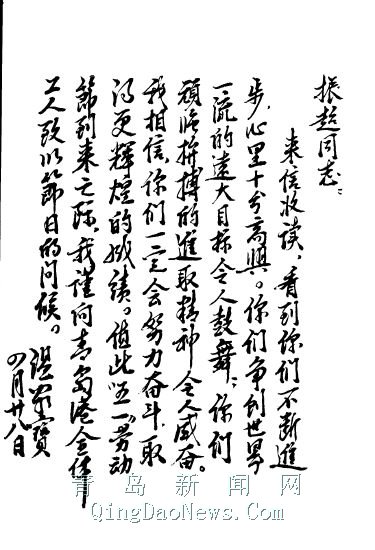 振超同志：
来信收读，看到你们不断进
步，心里十分高興。你们争创世界
一流的远大目标令人鼓舞；你们
顽强拚搏的進取精神令人感奋。
我相信，你们一定会努力奋斗，取
得更辉煌的成绩。值此"五一"劳动
節到来之际，我谨向青岛港全体
工人致以節日的问候。
温家宝
四月廿八日
青岛新闻网
QingDaoNews.Com